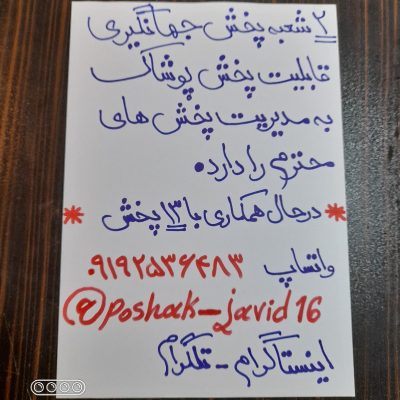 ۲ شعبه پخش جهانگیری
قابلیت پخش پوشاک
به مدیریت پخش های
محترم را دارد.
* درحال همکاری با ۱۳ پخش *
واتساپ ۰۹۱۹۲۵۳۶۴۸۳
@poshak_javid16
اینستاگرام - تلگرام